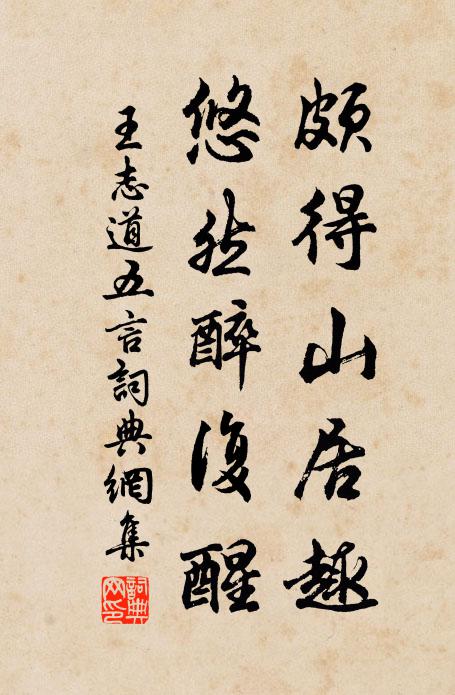 頗得山居趣
悠然醉復醒
王志道五言詞典網集
詞典网印